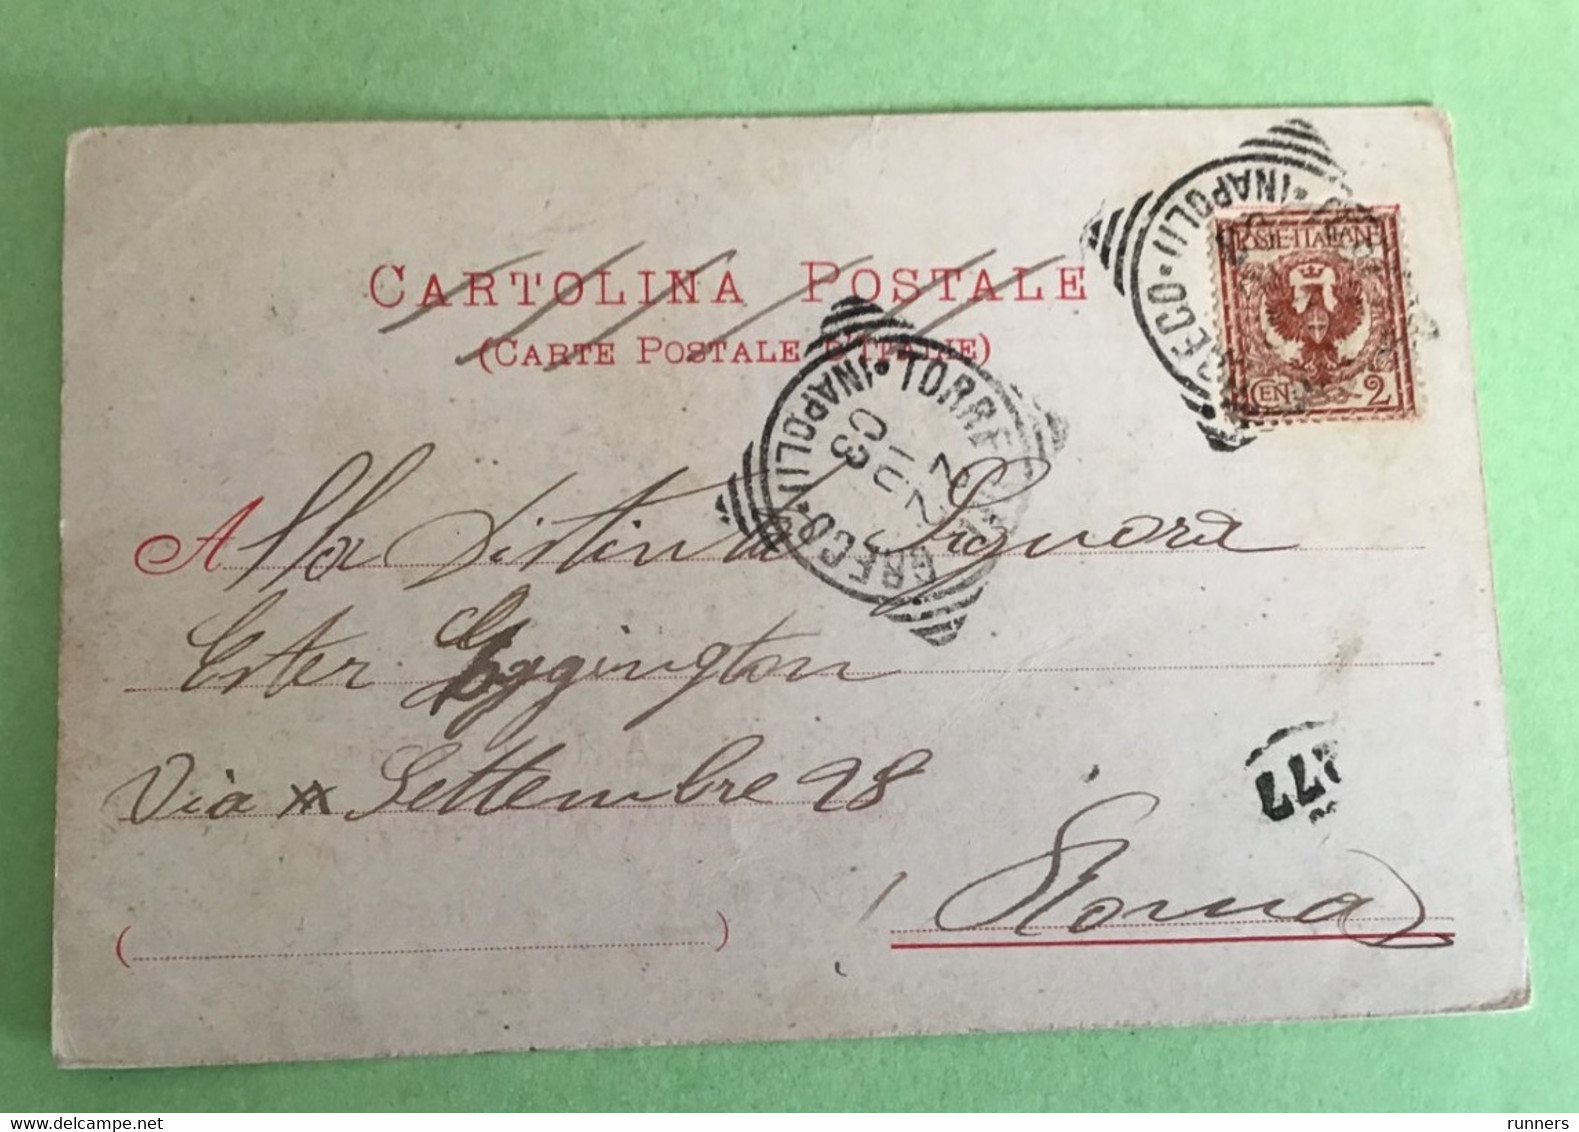 CARTOLINA POSTALE
(CARTE POSTALE D'ITALIE)
POSTE-ITALIANE
CEN. 2
(NAPOLI) · GRECO
TORRE GRECO · (NAPOLI)
2 LUG 03
Alla Distinta Signora
Ester Eggington
Via XX Settembre 98
Roma
( )
377
delcampe.net
runners